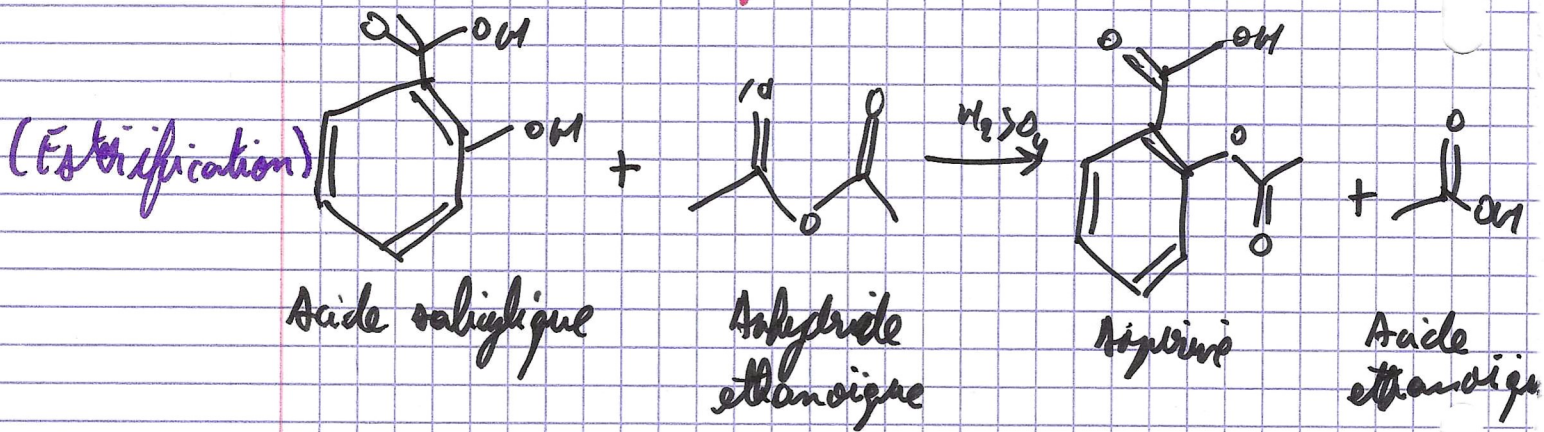 O OH
OH
(Estérification)
+
O O
O
H2SO4
O OH
O
O
+
O
OH
Acide salicylique
Anhydride
éthanoïque
Aspirine
Acide
éthanoïqu